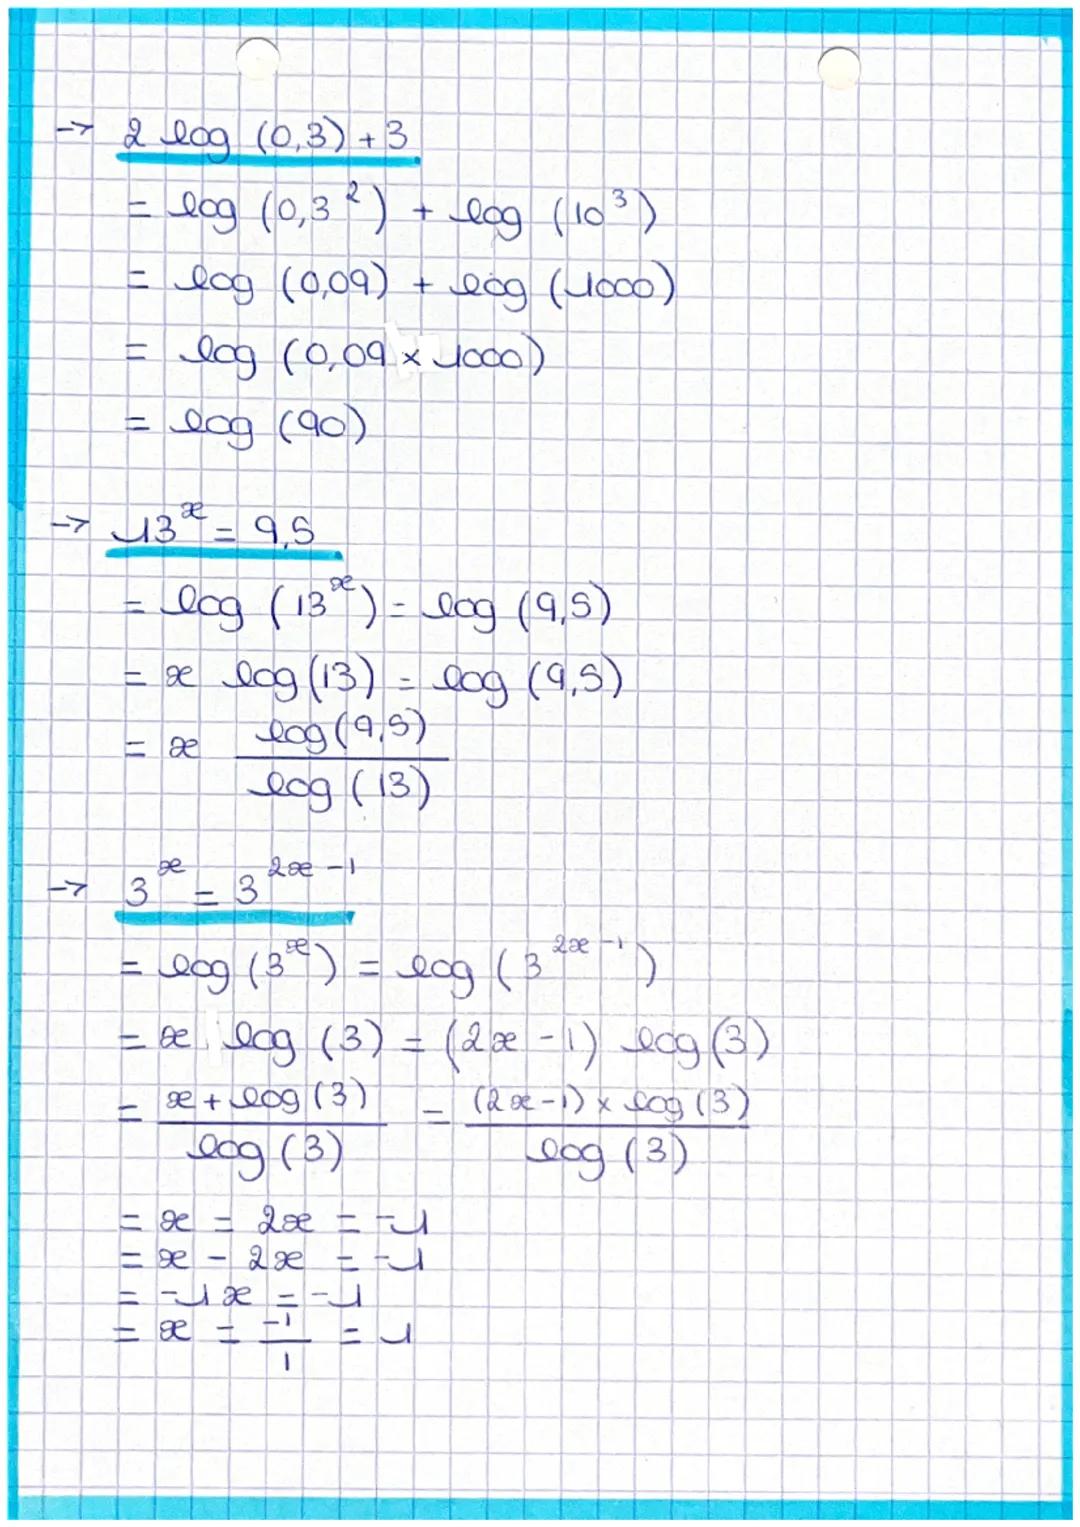 -> 2 log (0,3) + 3
= log (0,3²) + log (10³)
= log (0,09) + log (1000)
= log (0,09 × 1000)
= log (90)
-> 13ˣ = 9,5
= log (13ˣ) = log (9,5)
= x log (13) = log (9,5)
= x log (9,5) / log (13)
-> 3ˣ = 3²ˣ⁻¹
= log (3ˣ) = log (3²ˣ⁻¹)
= x log (3) = (2x - 1) log (3)
= x + log (3) / log (3) = (2x-1) × log (3) / log (3)
= x = 2x = -1
= x - 2x = -1
= -1x = -1
= x = -1/1 = 1